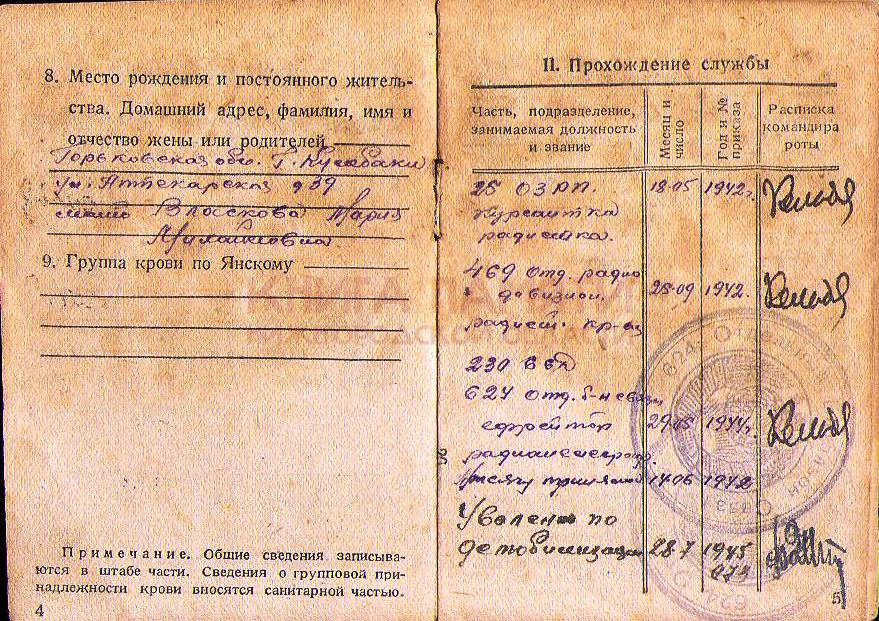 8. Место рождения и постоянного житель-
ства. Домашний адрес, фамилия, имя и
отчество жены или родителей
Горьковская обл. г. Кулебаки
ул. Аптекарская д 39
Власкова Мария
9. Группа крови по Янскому
Примечание. Общие сведения записыва-
ются в штабе части. Сведения о групповой при-
надлежности крови вносятся санитарной частью.
4
II. Прохождение службы
Часть, подразделение,
занимаемая должность
и звание
Месяц и
число
Год и №
приказа
Расписка
командира
роты
25 ОЗРП. 18·05 1942г.
курсантка
радистка.
469 отд. радио
дивизион. 25·09 1942.
радист. кр-ец
230
624 отд. б-н связи
ефрейтор 29·05 1944г.
Присягу приняла 14·06 1942
Уволена по
демобилизации 28·7 1945
5